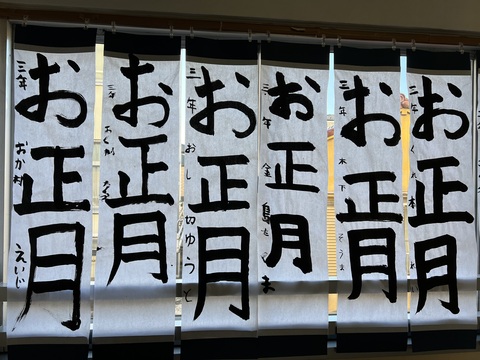 お正月
三年 おか村 えいじ
お正月
お正月
三年 おし切ゆうと
お正月
三年 金島
お正月
三年 木下そうま
お正月